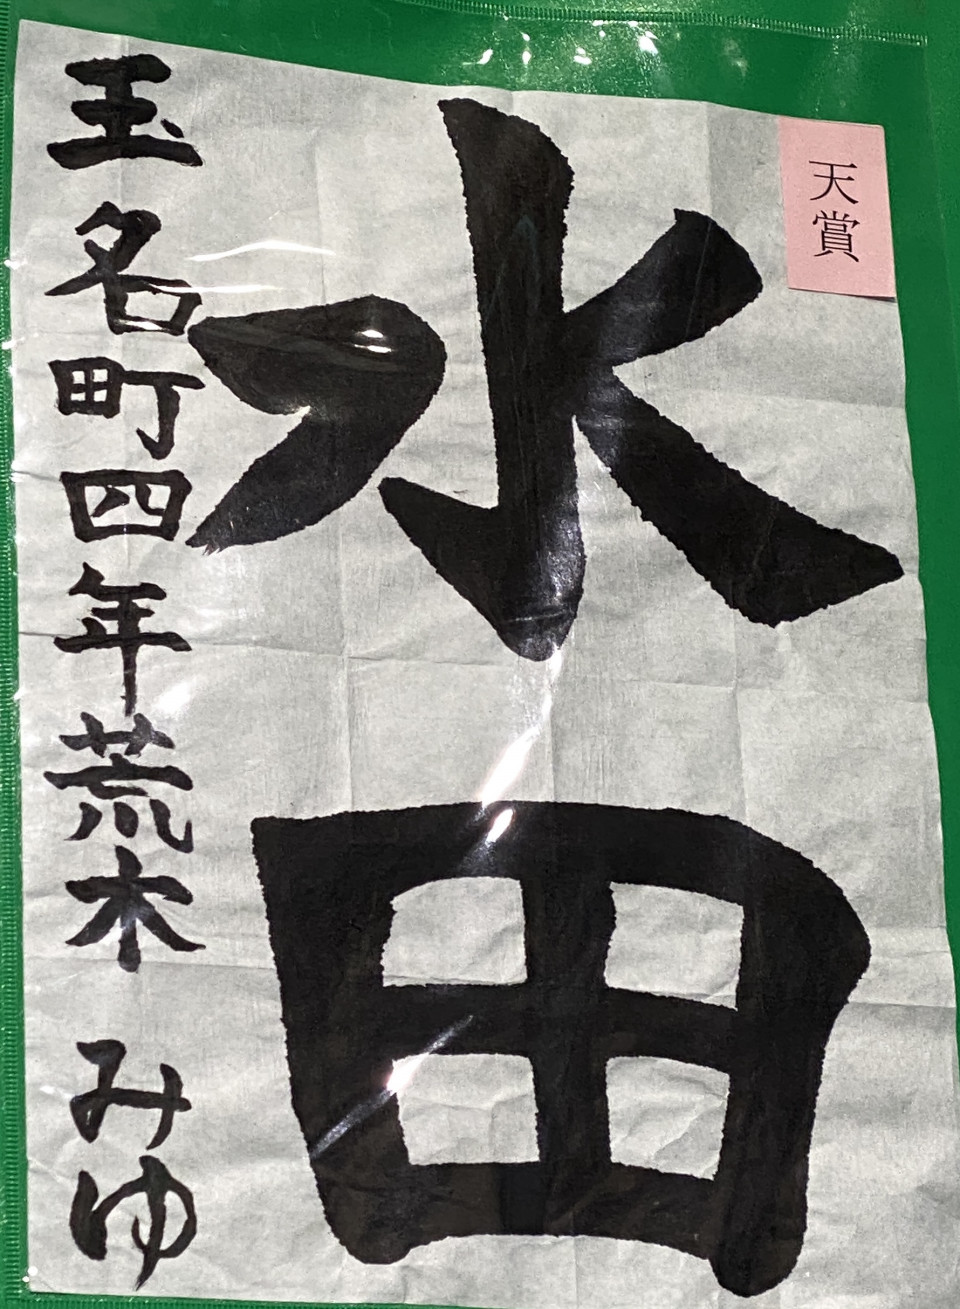 天賞
水田
玉名町四年荒木 みゆ